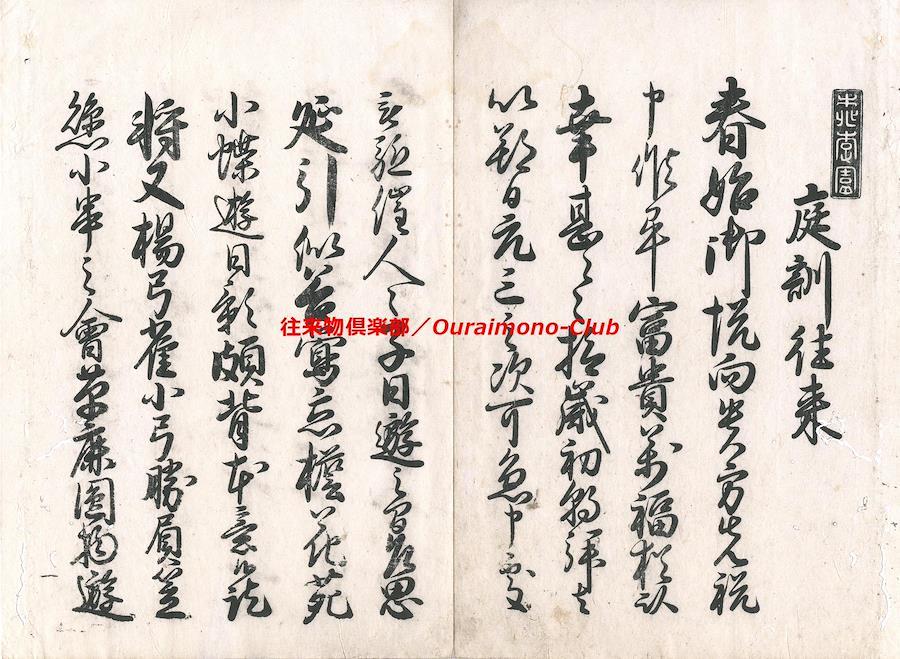 庭訓往来
春始御悦向貴方先祝
申候畢富貴萬福猶以
幸甚々々抑歳初朝拝者
以朔日元三之次可急申處
被駈催人々子日遊之間乍思
延引似谷鶯忘檐花苑
小蝶遊日影頗背本意候訖
将又楊弓雀小弓勝負笠
懸小串之會草鹿圓物遊
一
往来物倶楽部／Ouraimono-Club